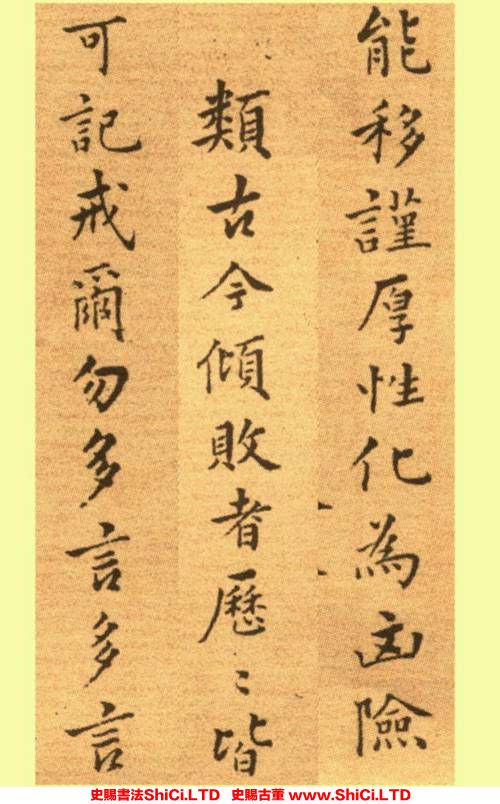 能移謹厚性化為凶險
類古今傾敗者歷〻皆
可記戒爾勿多言多言
史賜書法ShiCi.LTD 史賜古董 www.ShiCi.LTD